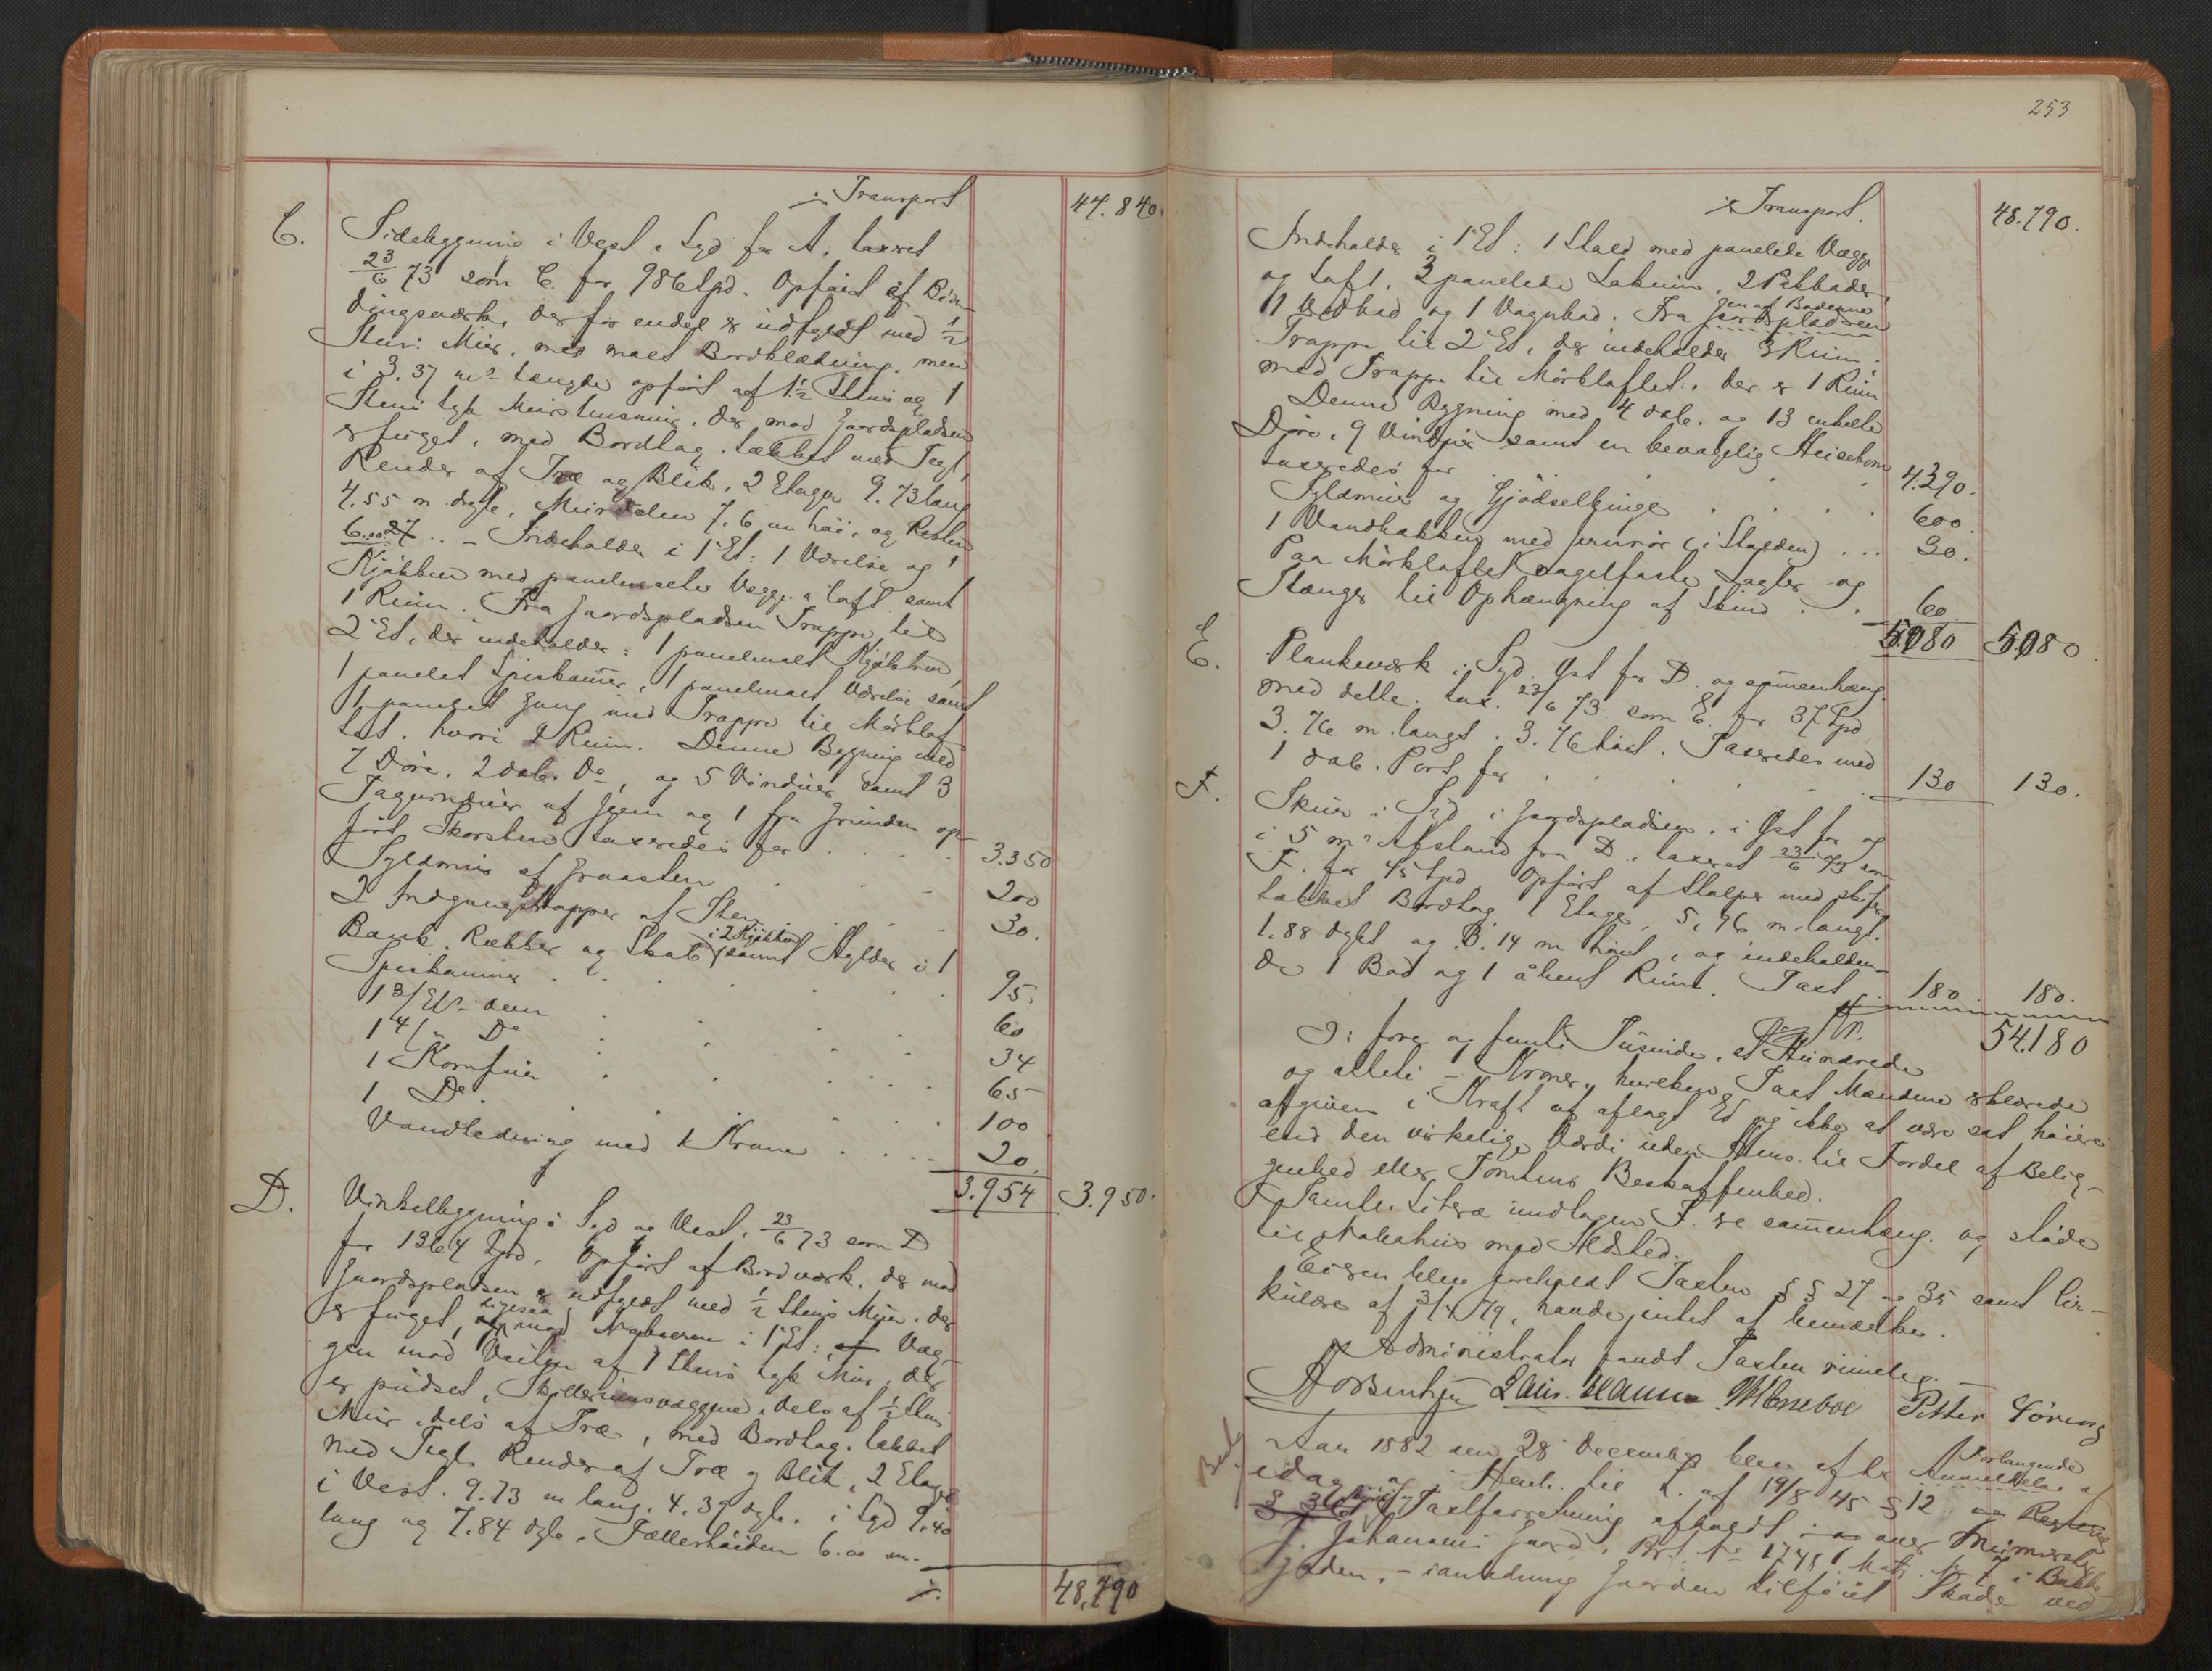 Transport 44.840.
C. Sidebygning i Vest & Syd for A, taxeret
23/6 73 som C. for 986 Spd. Opført af Bin-
dingsværk, der for endel er udfyldt med 1/2
Stens Mur, med malt Bordklædning, men
i 3.37 ms Længde opført af 1 1/2 Stens og 1
Stens tyk Murstensmur, der mod Gaardspladsen
er fuget, med Bordtag, tækket med Tegl,
Render af Træ og Blik, 2 Etager 9.73 lang
4.55 m. dyb, Murdelen 7.6 m høi, og Resten
6.00 – Indeholder i 1 Et: 1 Værelse og 1
Kjøkken med panelmalte Vægge & Loft samt
1 Rum. Fra Gaardspladsen Trappe til
2 Et, der indeholder: 1 panelmalt Kjøkken,
1 panelet Spiskammer, 1 panelmalt Værelse samt
1 panelet Gang med Trappe til Mørkloft-
tet, hvori 2 Rum. Denne Bygning med
7 Døre, 2 dob. Do, og 5 Vinduer samt 3
Tagvinduer af Jern og 1 fra Grunden op-
ført Skorsten taxeredes for 3.350
Syldmur af Graasten 200
2 Indgangstrapper af Sten 30.
Bænk, Rækker og Skab i 2 Kjøkken samt Hylder i 1
Spiskammer 95.
1 3/Et. Ovn 60
1 4/" Do 34
1 Komfur 65
1 Do 100
Vandledning med 1 Krane 20.
3.954 3.950.
D. Vinkelbygning i Syd og Vest, 23/6 73 som D
for 1364 Spd. Opført af Bindværk, der mod
Gaardspladsen er udfyldt med 1/2 Stens Mur, der
er fuget, ligesaa mod Naboeren i 1 Et: Væg-
gen mod Veiten af 1 Stens tyk Mur, der
er pudset, Skillerumsvæggene, dels af 1/2 Stens
Mur, dels af Træ, med Bordtag, tækket
med Tegl. Render af Træ og Blik, 2 Etager
i Vest. 9.73 m lang, 4.39 dyb, i Syd 9.40
lang og 7.84 dyb. Fælleshøiden 6.00 m.
./. 48,790
253
Transport. 48.790.
Indeholder i 1 Et: 1 Stald med panelede Vægge
og Loft, 2 panelede Lokum, 2 Pakboder,
1 Vedbod og 1 Vognbod. Fra Gaardspladsen en af Boderne
Trappe til 2 Et, der indeholder 3 Rum,
med Trappe til Mørkloftet, der er 1 Rum
Denne Bygning med 4 dob. og 13 enkelte
Døre, 9 Vinduer samt en bevægelig Heisebom
taxeredes for 4.390.
Syldmur og Gjødselbinge 600.
1 Vandbakken med Jernrør (i Stalden) 30.
Paa Mørkloftet nagelfaste Lægter og
Stænger til Ophængning af Skind 60
5.080 5.080.
E. Plankeværk i Syd. Øst for D. og sammenhæng.
med dette. tax. 23/6 73 som E. for 37 Spd
3.76 m. langt. 3.76 høit. Taxeredes med
1 dob. Port for 130 130.
F. Skur i Syd i Gaardspladsen, i Øst for og
i 5 ms Afstand fra D, taxeret 23/6 73 som
F. for 45 Spd. Opført af Stolper med skifer-
tækket Bordtag 1 Etage, 5,76 m. langt.
1.88 dybt og 3.14 m høit, og indeholden-
de 1 Bod og 1 åbent Rum. Taxt 180. 180.
Kr. 54.180
ɔ: fire og femti Tusinde, et Hundrede
og otteti – Kroner, hvilken Taxt Mændene erklærede
afgiven i Kraft af aflagt Ed og ikke at være sat høiere
end den virkelige Værdi uden Hens. til Fordel af Belig-
genhed eller Tomtens Beskaffenhed.
Samtl. Litera undtagen F. er sammenhæng. og støde
til Nabohus med Ildsted.
Eieren blev foreholdt Taxten §§ 27 og 35 samt Cir-
kulære af 3/4 79, havde intet at bemærke.
Administrator fandt Taxten rimelig.
Petter Søreng
Aar 1882 den 28 December blev efter Forlangende
idag og i Henh. til L. af 19/8 45 § 12
Taxtforretning afholdt
J. Johansens Gaard, Br. No 1748, Matr. No 7 i Bakke-
gaden, – i anledning Gaarden tilføiet Skade ved